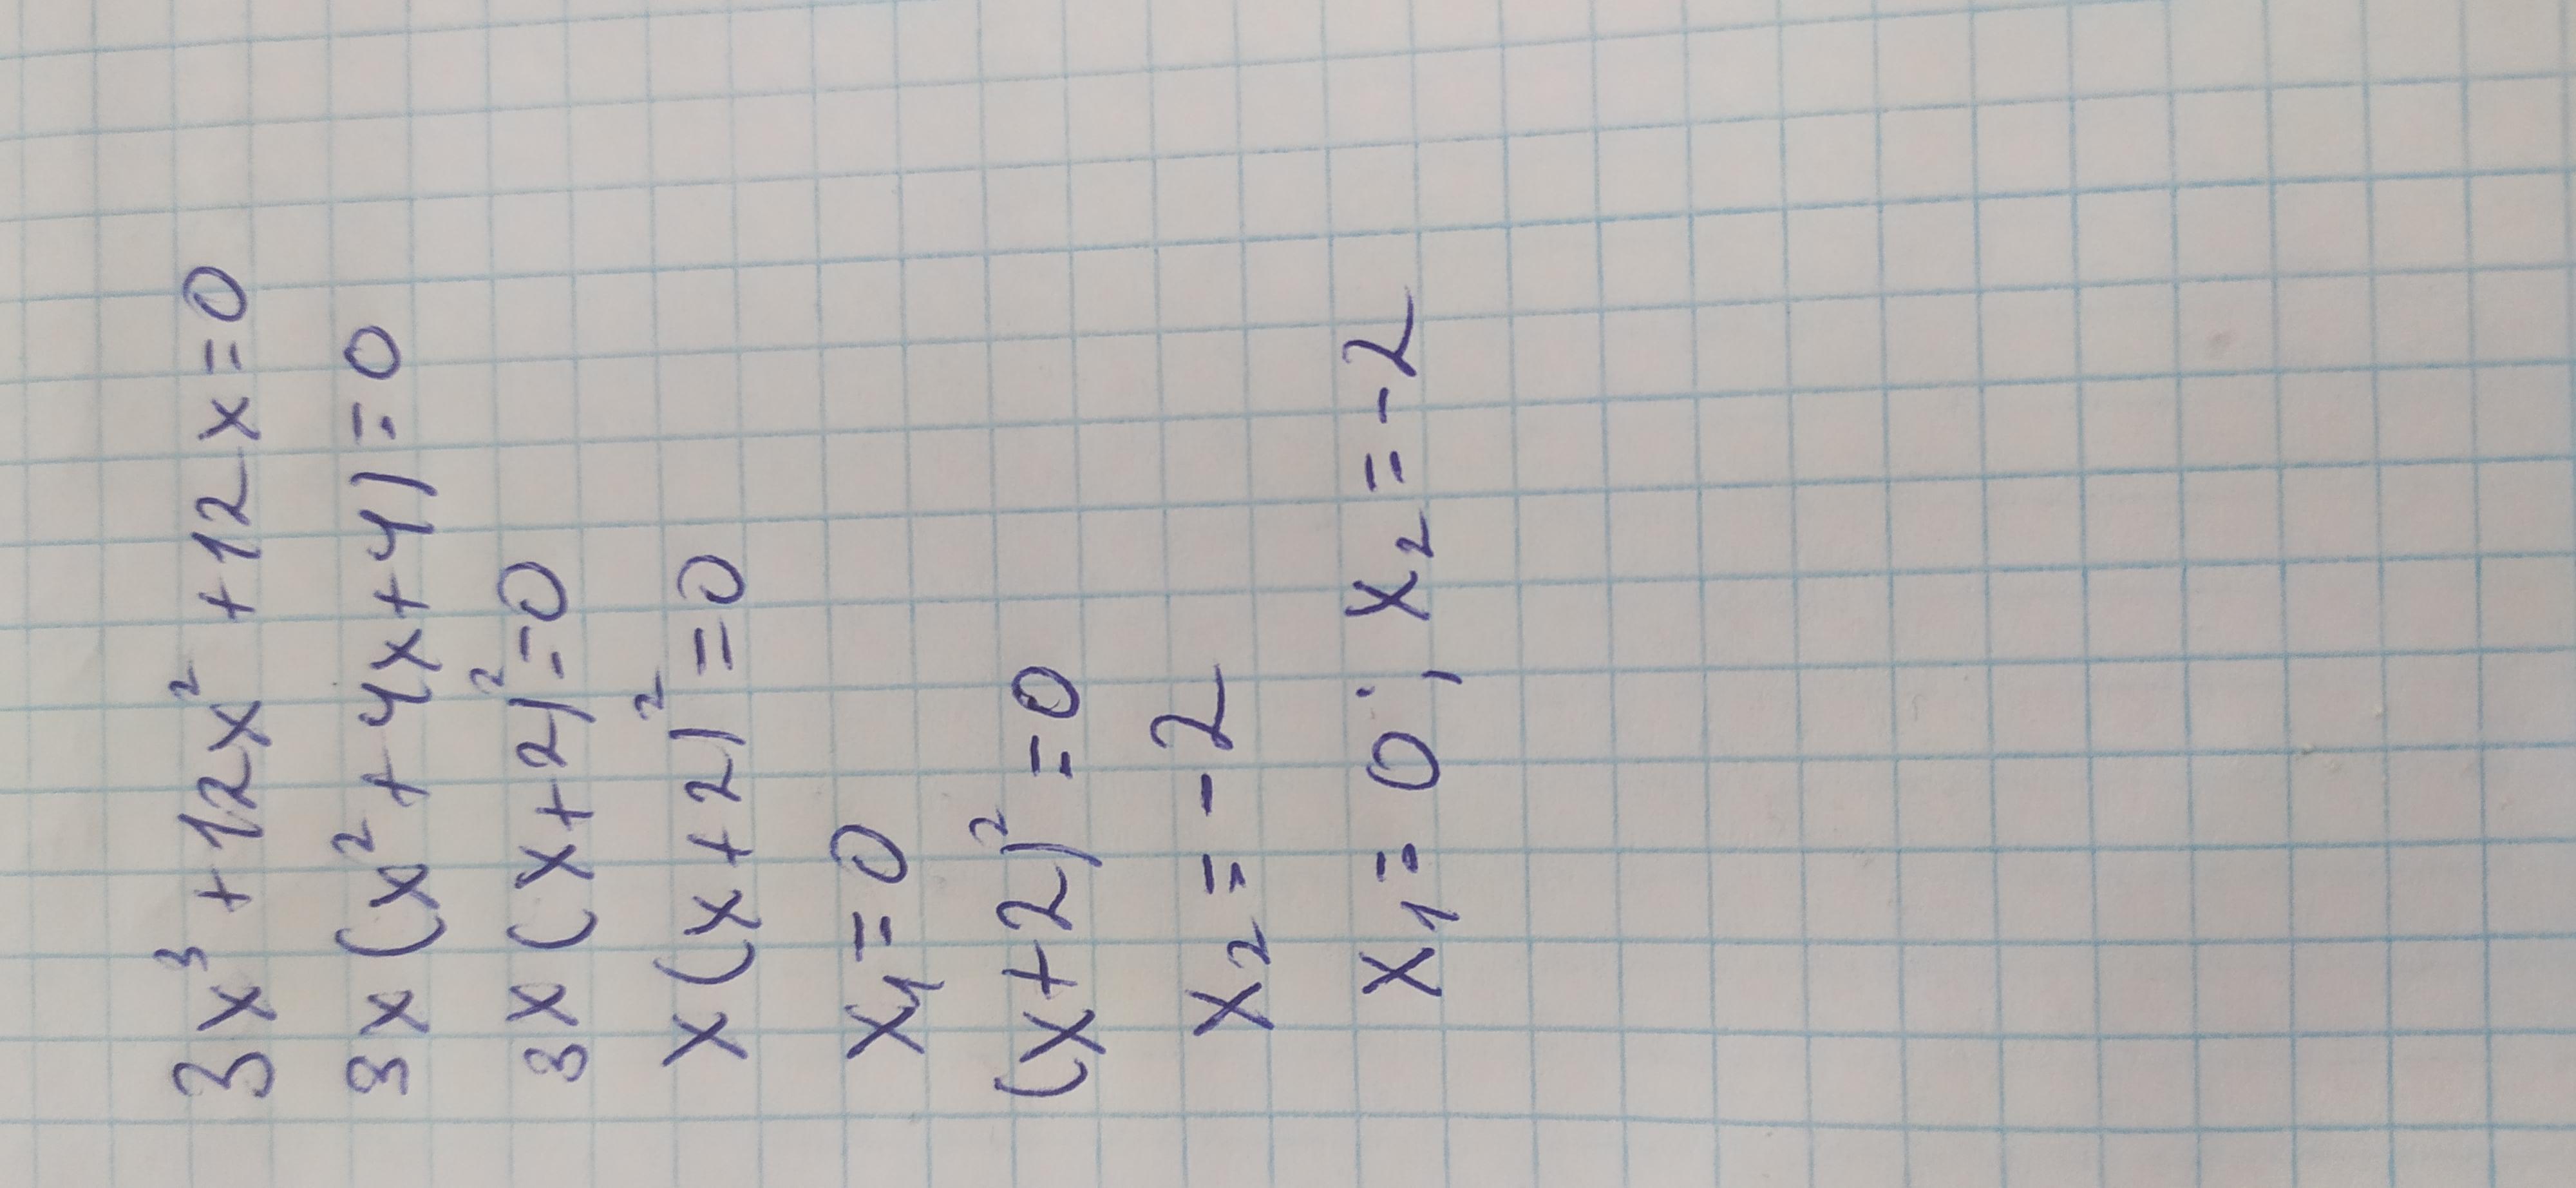 3x³ + 12x² + 12x = 0
3x(x² + 4x + 4) = 0
3x(x + 2)² = 0
x(x + 2)² = 0
x₁ = 0
(x + 2)² = 0
x₂ = -2
x₁ = 0; x₂ = -2